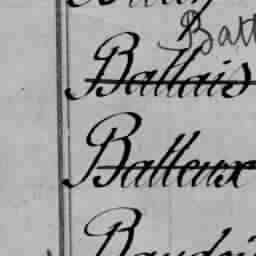 Batt
Ballais
Batteux
Baudoi